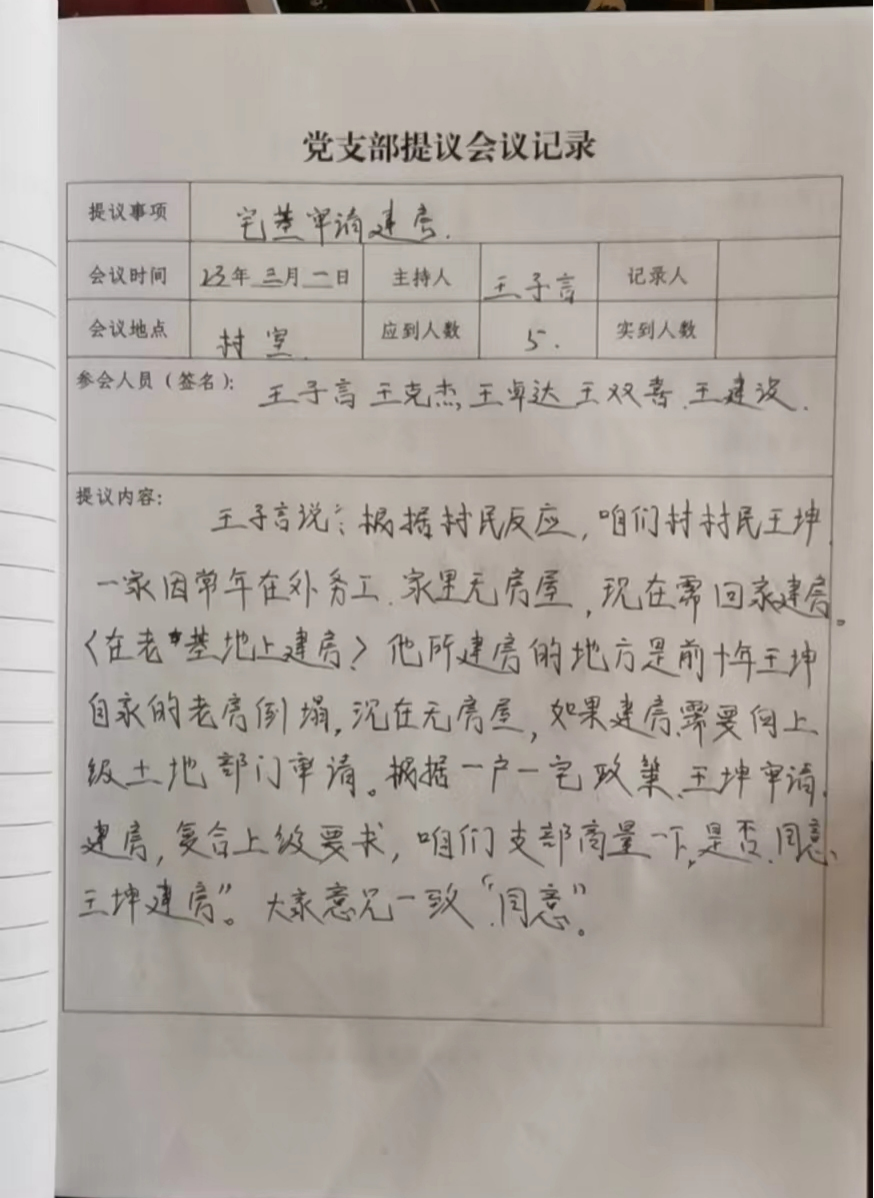 党支部提议会议记录
提议事项 宅基审请建房.
会议时间 23年三月一日 主持人 王子言 记录人
会议地点 村室. 应到人数 5. 实到人数
参会人员(签名): 王子言 王克杰 王卓达 王双喜 王建设.
提议内容:
王子言说:“根据村民反应,咱们村村民王坤
一家因常年在外务工.家里无房屋,现在需回家建房。
(在老基地上建房)他所建房的地方是前十年王坤
自家的老房倒塌,况在无房屋,如果建房需要向上
级土地部门审请。根据一户一宅政策、王坤审请
建房,复合上级要求,咱们支部商量一下,是否同意
王坤建房”。大家意见一致“同意”。